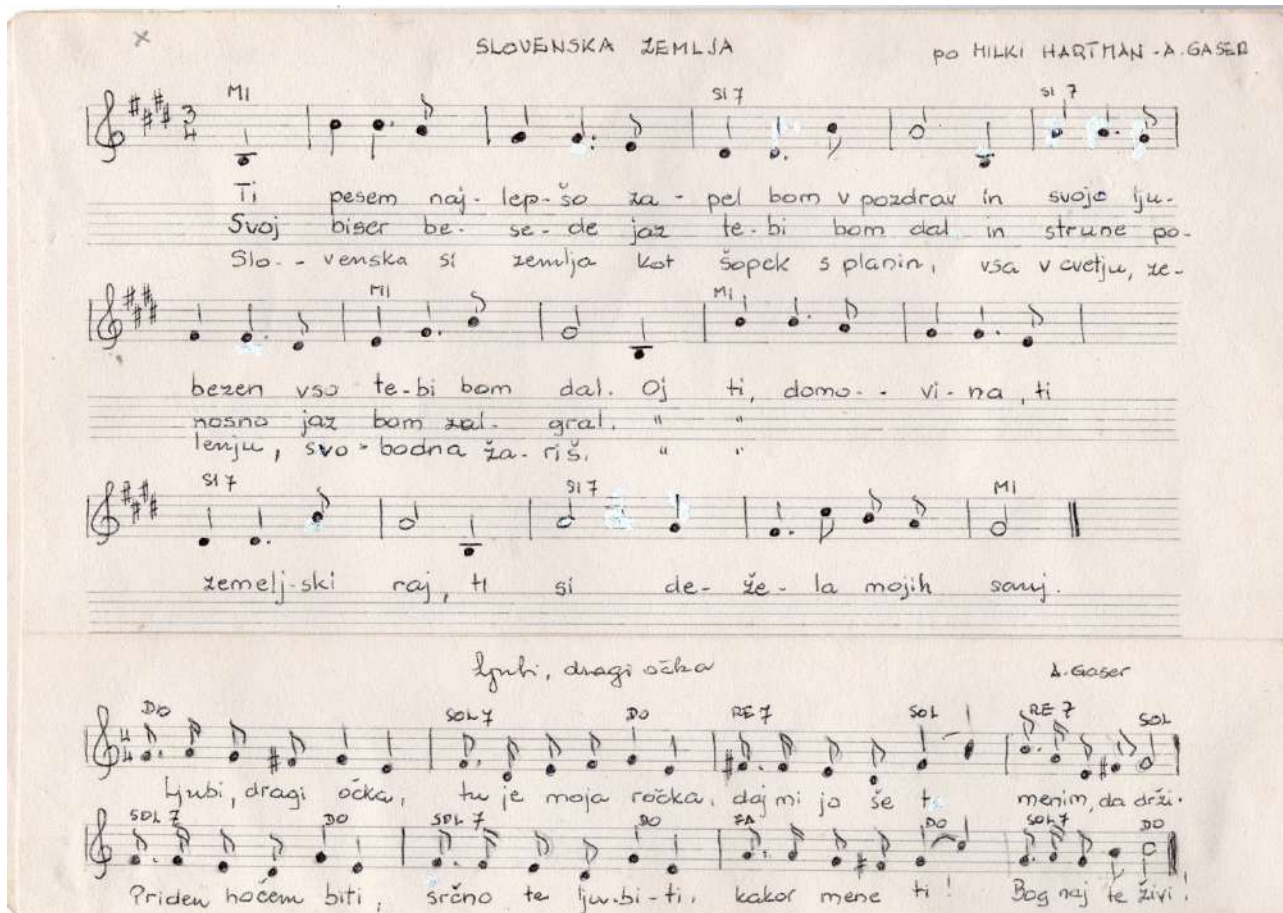 SLOVENSKA ZEMLJA
po MILKI HARTMAN - A. GASER
MI SI 7 SI 7
3
4
Ti pesem naj - lep - šo za - pel bom v pozdrav in svojo lju-
Svoj biser be - se - de jaz te - bi bom dal in strune po-
Slo - - venska si zemlja kot šopek s planin, vsa v cvetju, ze-
MI MI
bezen vso te - bi bom dal. Oj ti, domo - - vi - na, ti
nosno jaz bom zai - gral. " "
lenju, svo - bodna ža - riš. " "
SI 7 SI 7 MI
zemelj - ski raj, ti si de - že - la mojih sanj.
Ljubi, dragi očka
A. Gaser
DO SOL 7 DO RE 7 SOL RE 7 SOL
4
4
Ljubi, dragi očka, tu je moja ročka, daj mi jo še menim, da drži.
SOL 7 DO SOL 7 DO FA DO SOL 7 DO
Priden hočem biti, srčno te ljubi - ti, kakor mene ti! Bog naj te živi!